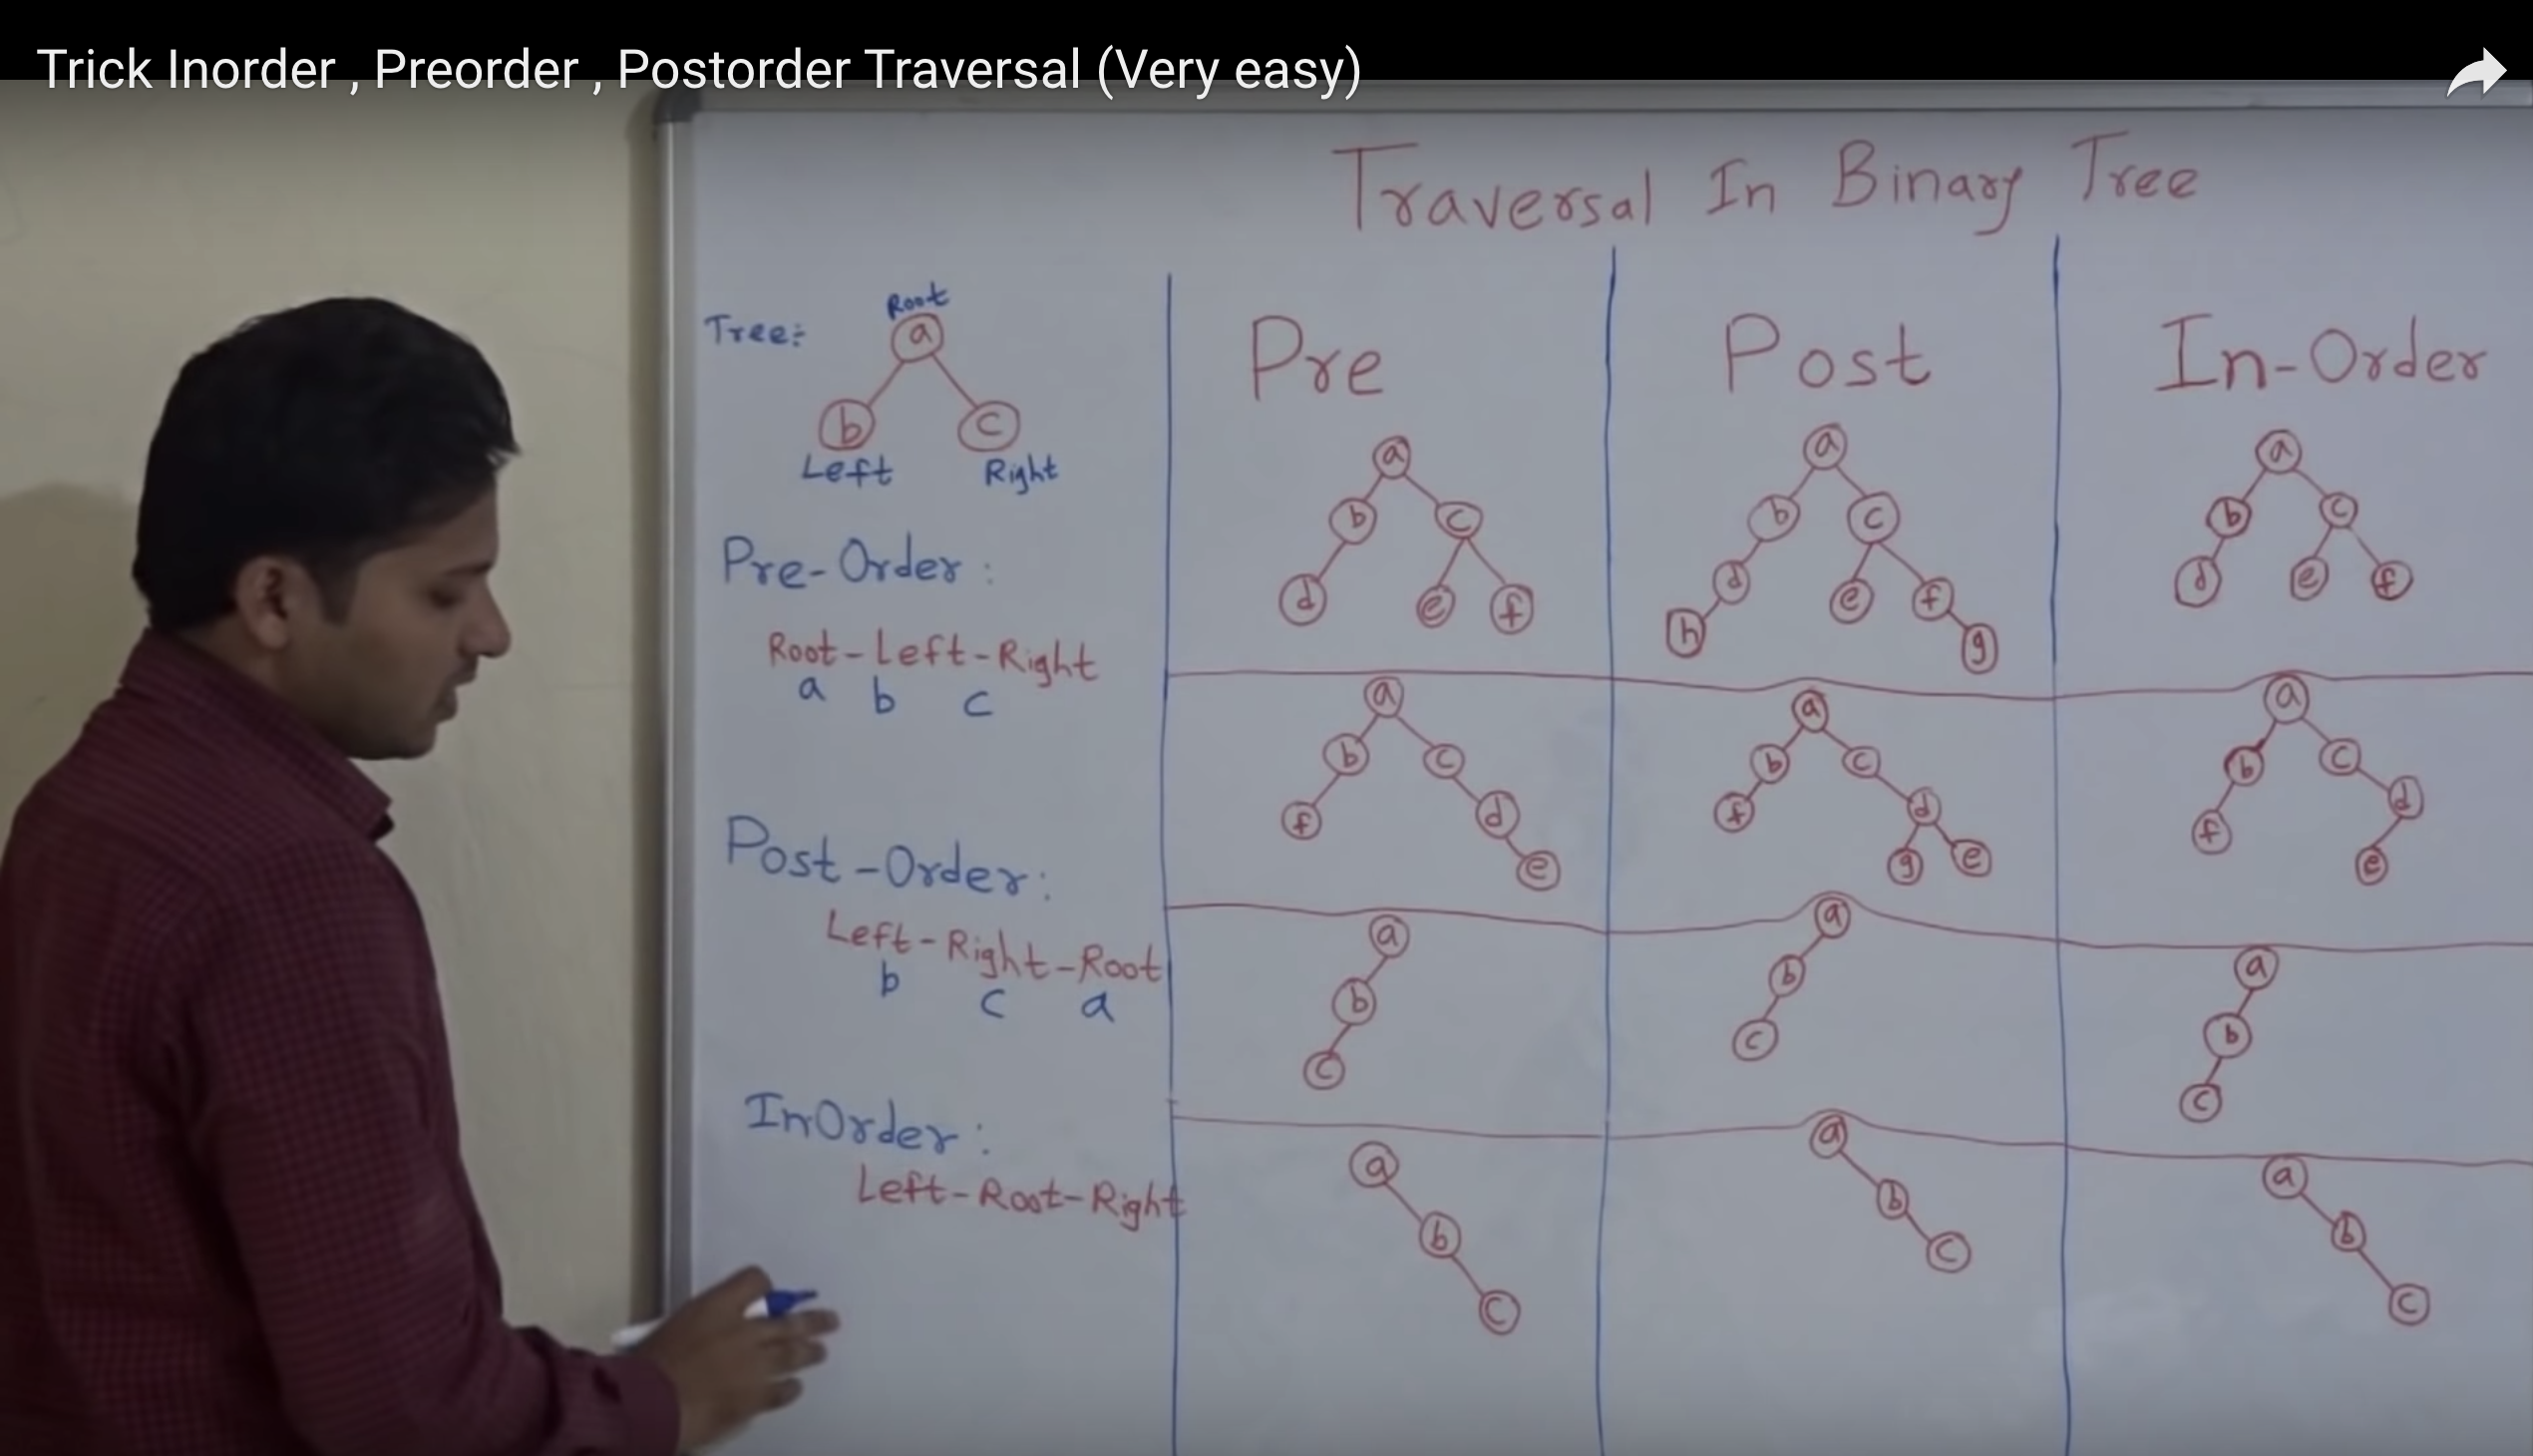 Trick Inorder , Preorder , Postorder Traversal (Very easy)
Traversal In Binary Tree
Tree:
Root
a
b
c
Left
Right
Pre-Order:
Root-Left-Right
a b c
Post-Order:
Left-Right-Root
b c a
InOrder:
Left-Root-Right
Pre
a
b c
d e f
a
b c
f d
e
a
b
c
a
b
c
Post
a
b c
d e f
h g
a
b c
f d
g e
a
b
c
a
b
c
In-Order
a
b c
d e f
a
b c
f d
e
a
b
c
a
b
c